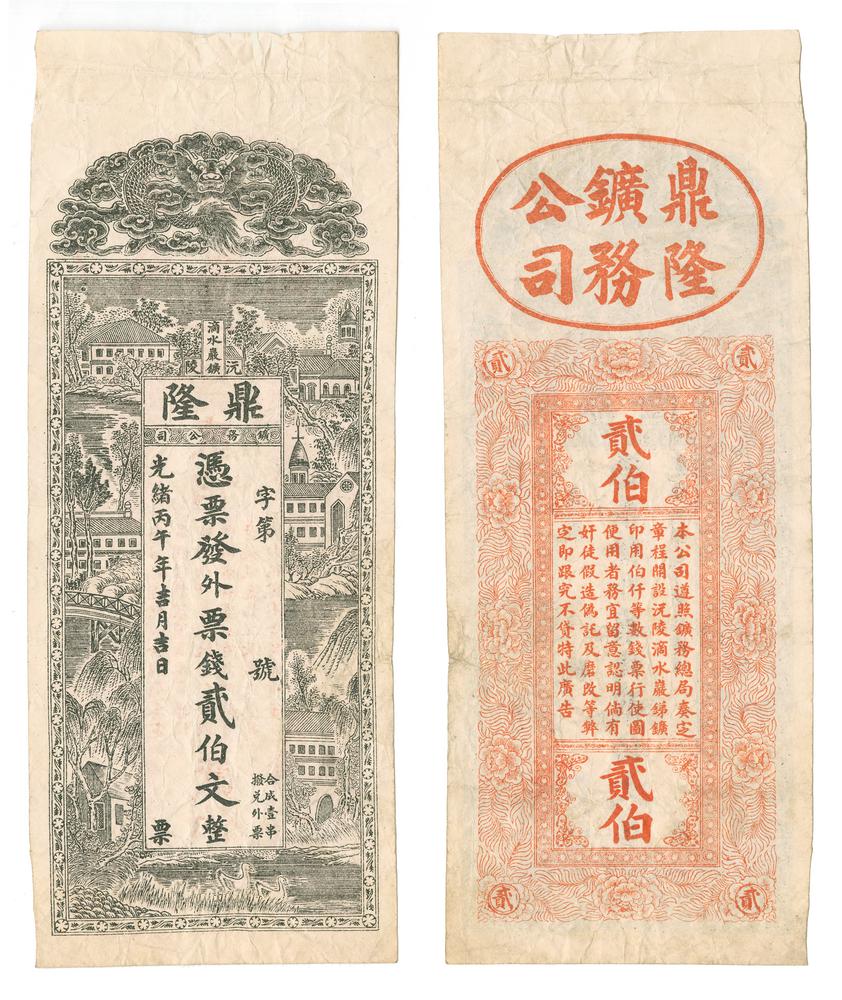 滴水巖鑛
沅陵
鼎隆
鑛務公司
字第 號
憑票發外票錢貳伯文整
合成壹串
撥兑外票
光緒丙午年吉月吉日 票
鼎隆
鑛務
公司
貳
貳
貳伯
本公司遵照鑛務總局奏定
章程開設沅陵滴水巖銻鑛
印用伯仟等數錢票行使圖
便用者務宜留意認明倘有
奸徒假造偽託及磨改等弊
定即跟究不貸特此廣告
貳伯
貳
貳